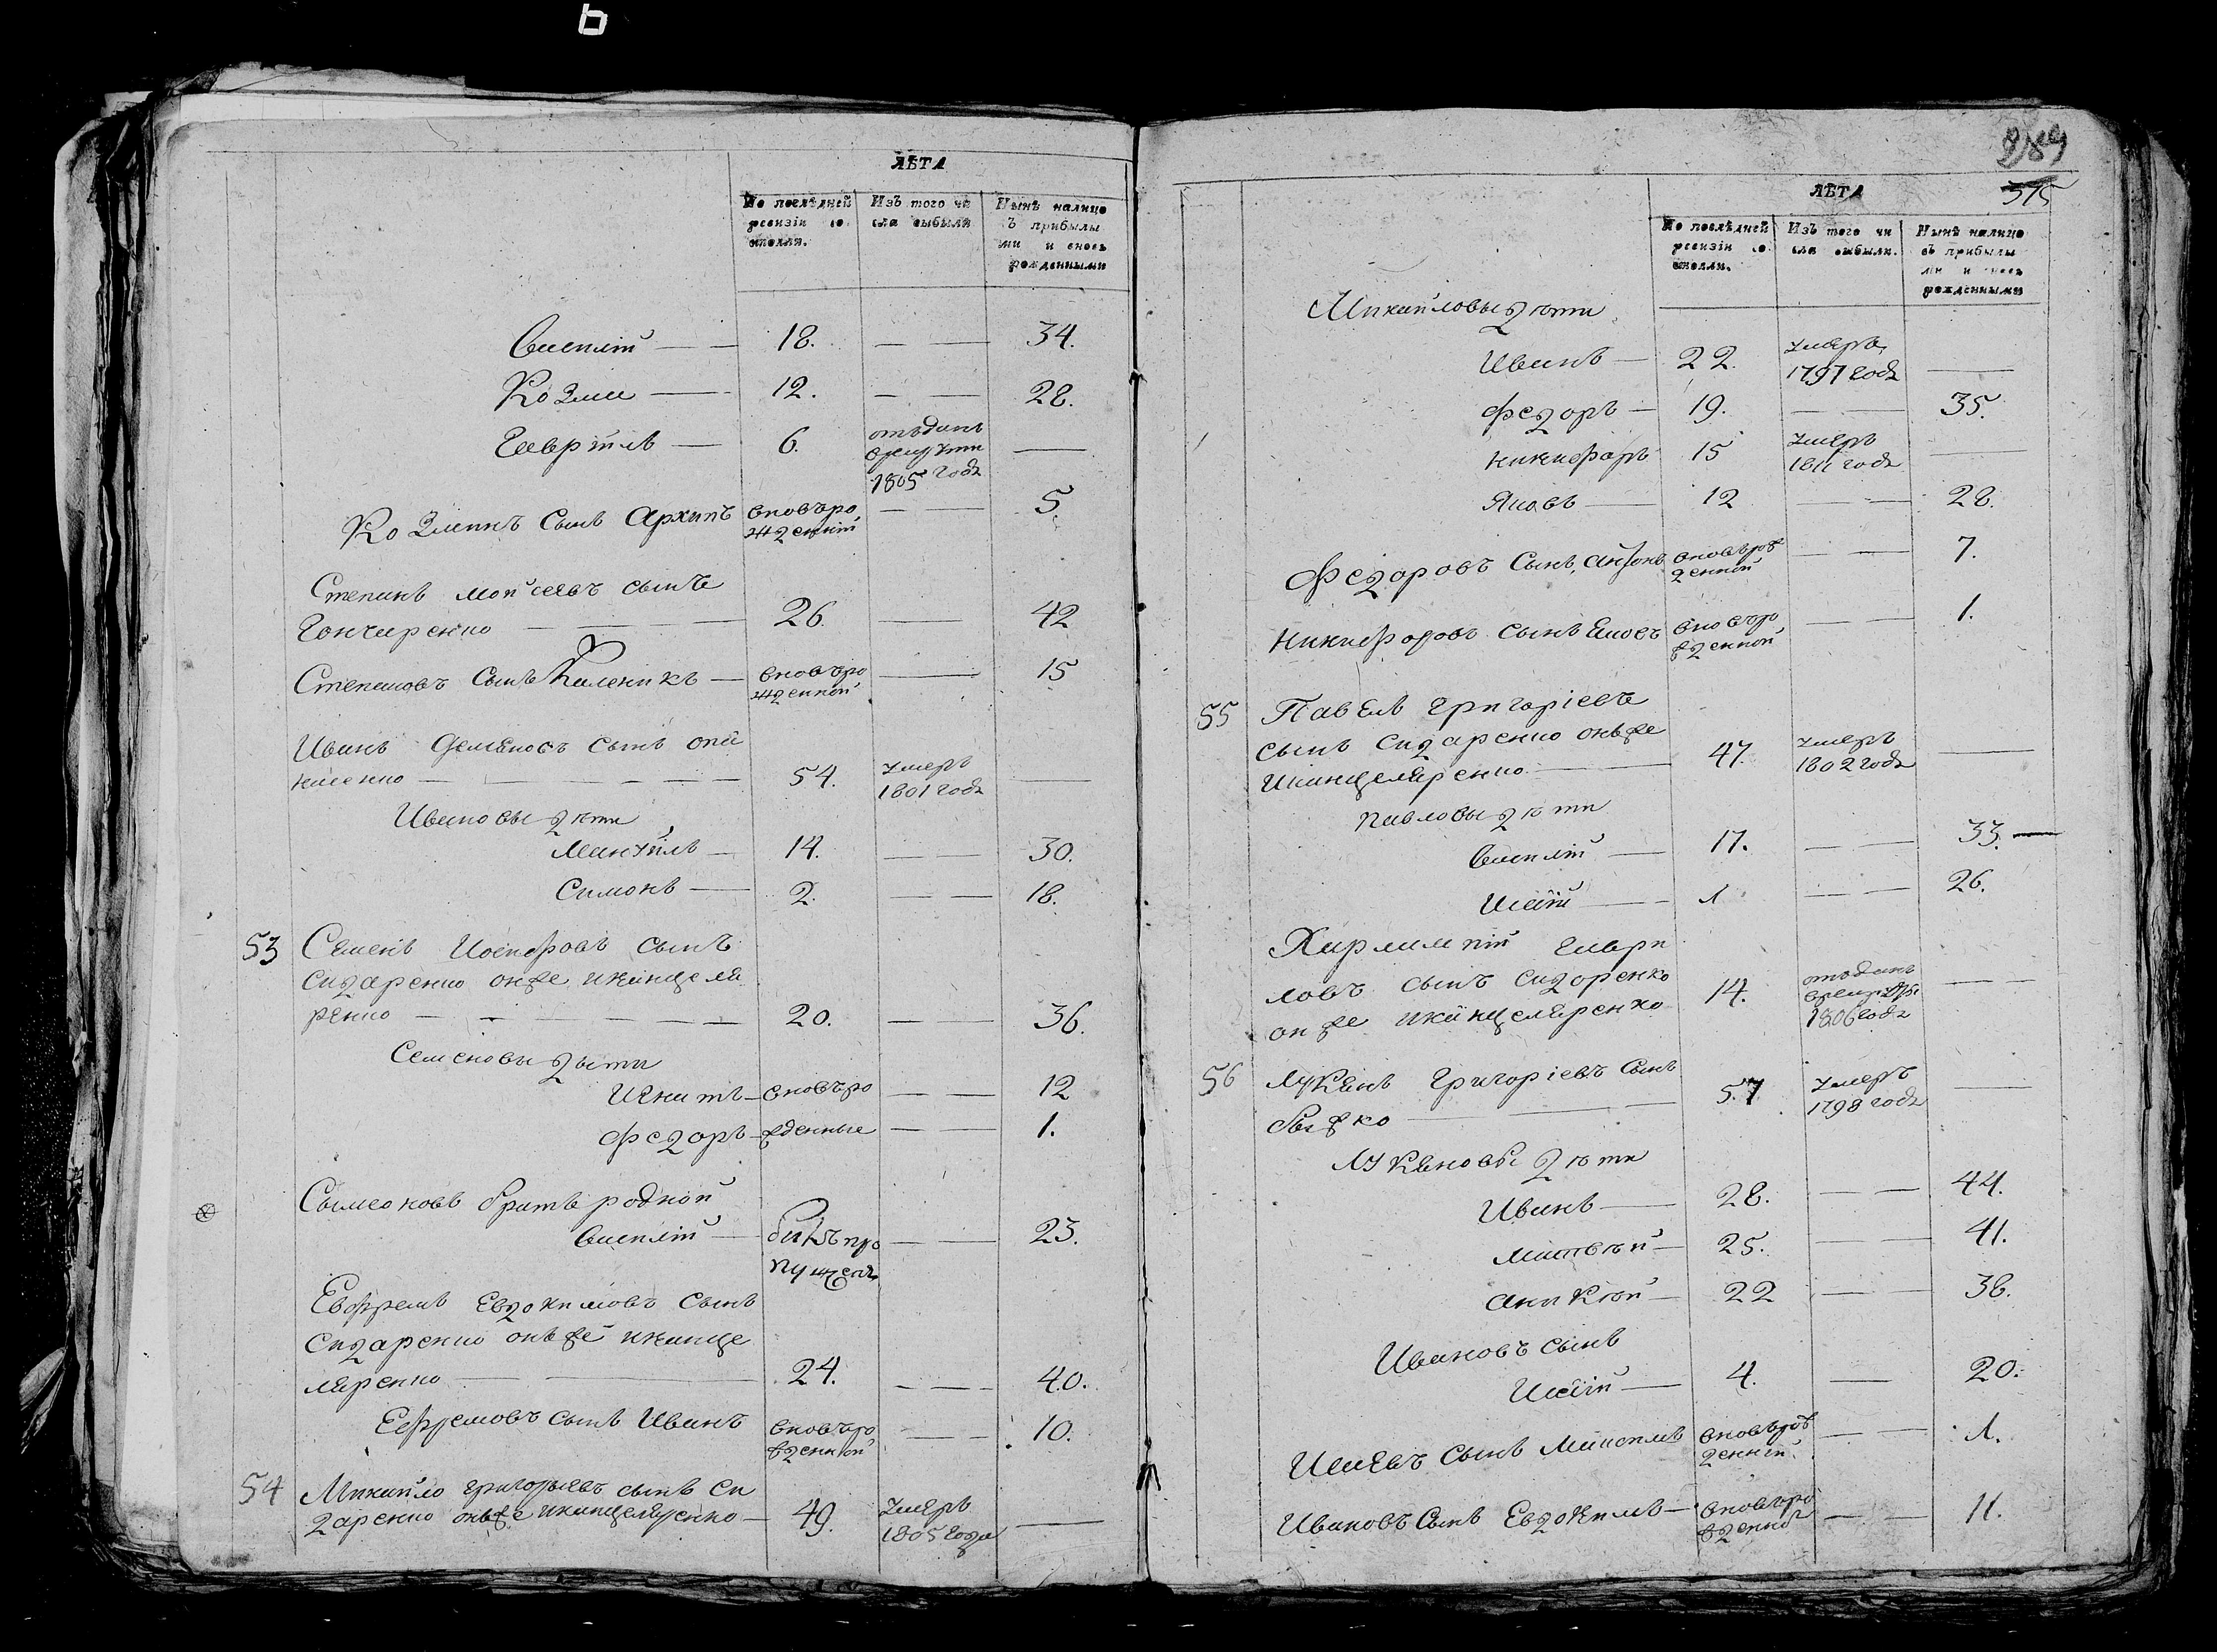 ЛѢТА
По послѣдней ревизіи со стояли.
Изъ того чи сла выбыли
Нынѣ налицо съ прибылы ми и вновь рожденными
Василій — 18. — — 34.
Козма — 12. — — 28.
Гаврійлъ — 6. отъданъ врекруты 1805 года —
Козминъ сынъ Архипъ вновъро жденній — — 5
Степанъ мойсеевъ сынъ
Гончаренко — — 26. — 42
Степановъ сынъ Каленикъ — вновъро жденной — 15
Иванъ Деменовъ сынъ
— — 54. умеръ 1801 года —
Ивановы дѣти
Мануйлъ — 14. — — 30.
Симонъ — 2. — — 18.
53 Семенъ Иосифовъ сынъ
Сидаренко онже иканцеля
ренко — — 20. — — 36.
Семеновы дѣти
Игнатъ — вновъро — — 12
Федоръ — жденные — — 1.
Сымеоновъ братъ родной
Василій — билъ про пущенъ — — 23.
Евфремъ Евдокимовъ сынъ
Сидаренко онъже иканце
ляренко — 24. — — 40.
Ефремовъ сынъ Иванъ вновъро жденной — — 10.
54 Михайло григорьевъ сынъ Си
даренко онъже иканцеляренко — 49. умеръ 1805 года —
289
375
ЛѢТА
По послѣдней ревизіи со стояли.
Изъ того чи сла выбыли.
Нынѣ налицо съ прибылы ми и вновь рожденными
Михайловы дѣти
Иванъ — 22. умеръ 1797 года —
Федоръ — 19. — — 35.
никифоръ 15 умеръ 1811 года —
Яковъ — 12 — — 28.
Федоровъ сынъ, антонъ вновърож денной — — 7.
никифоровъ сынъ Яковъ вновъро жденной — — 1.
55 Павелъ григоріевъ
сынъ сидаренко онъже
иканцеляренко — 47. умеръ 1802 года —
павловы дѣти
Василій — 17. — — 33. —
Исай — 1 — — 26.
Харлампій гаври
ловъ сынъ сидоренко
онже иканцеляренко 14. отъданъ 1806 года — —
56 Лукянъ григоріевъ сынъ
— 57. умеръ 1798 года —
Лукяновы дѣти
Иванъ — 28. — — 44.
матвѣй — 25. — — 41.
аникѣй — 22 — — 38.
Ивановъ сынъ
Исай — 4. — 20.
Исаевъ сынъ вновърож денній — — 1.
Ивановъ сынъ Евдокимъ — вновъро жденной — — 11.